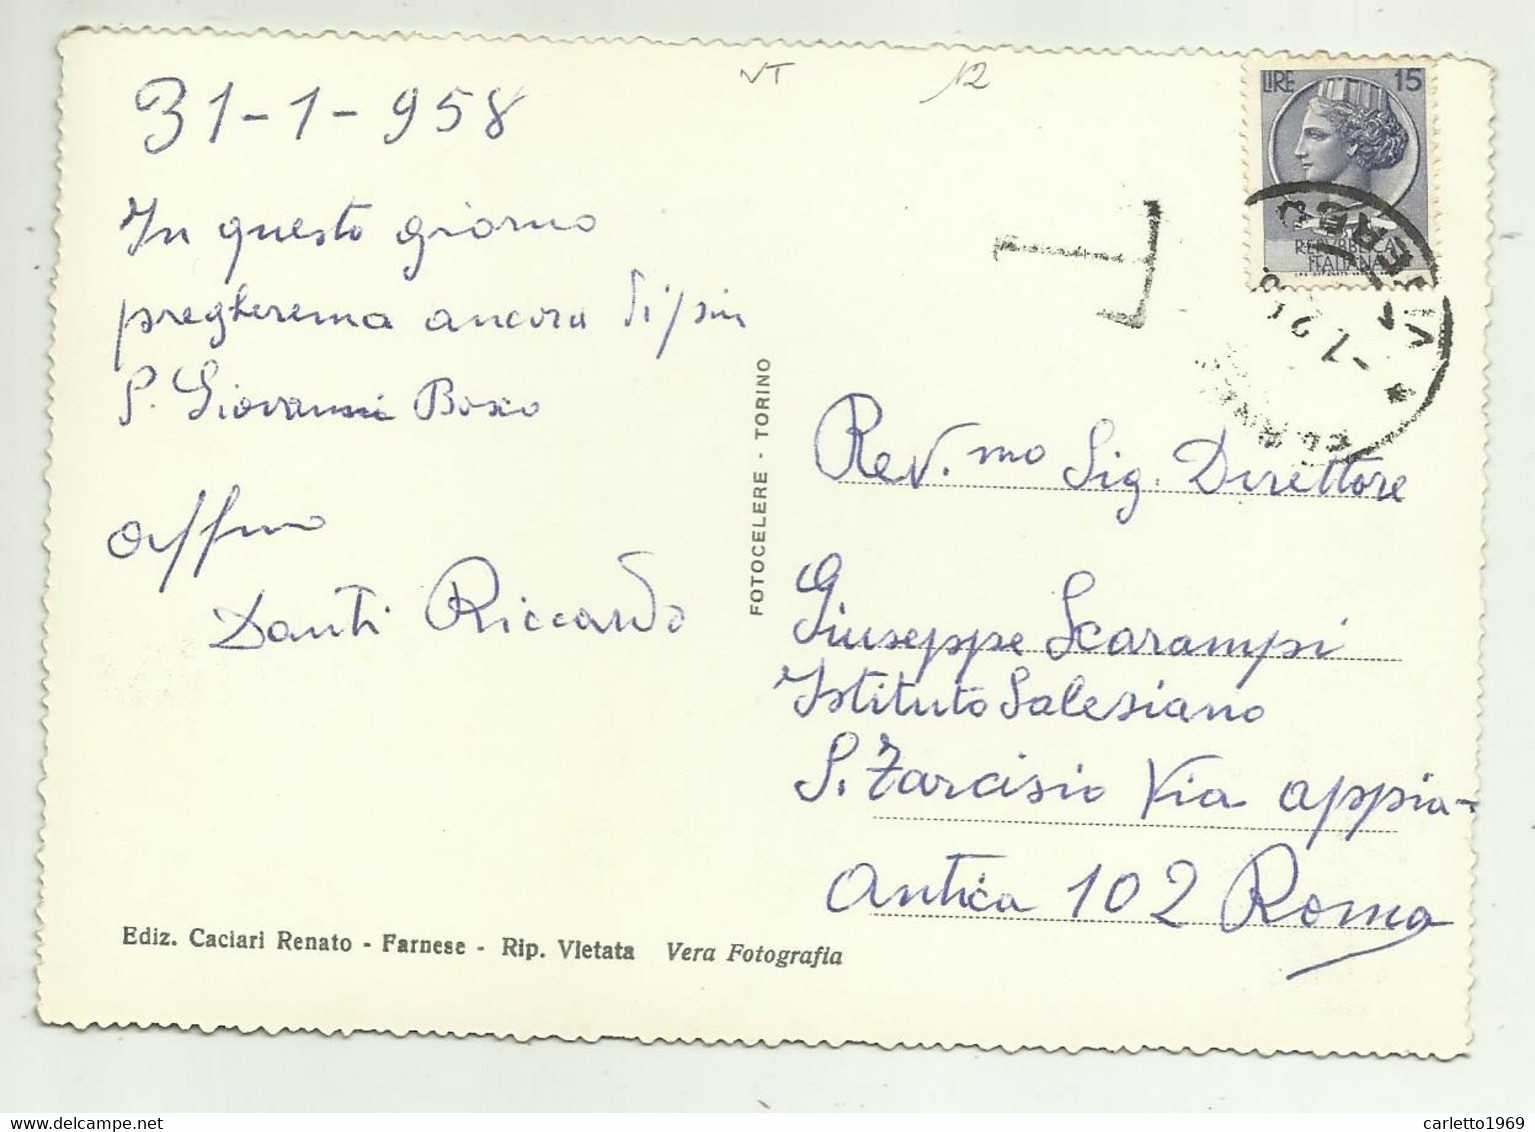 31-1-958
In questo giorno
pregheremo ancora di più
S. Giovanni Bosco
aff.mo
Danti Riccardo
VT
12
LIRE 15
REPVBBLICA
ITALIANA
VITERBO
T
FOTOCELERE - TORINO
Rev.mo Sig. Direttore
Giuseppe Scarampi
Istituto Salesiano
S. Tarcisio Via Appia
Antica 102 Roma
Ediz. Caciari Renato - Farnese - Rip. Vietata Vera Fotografia
carletto1969